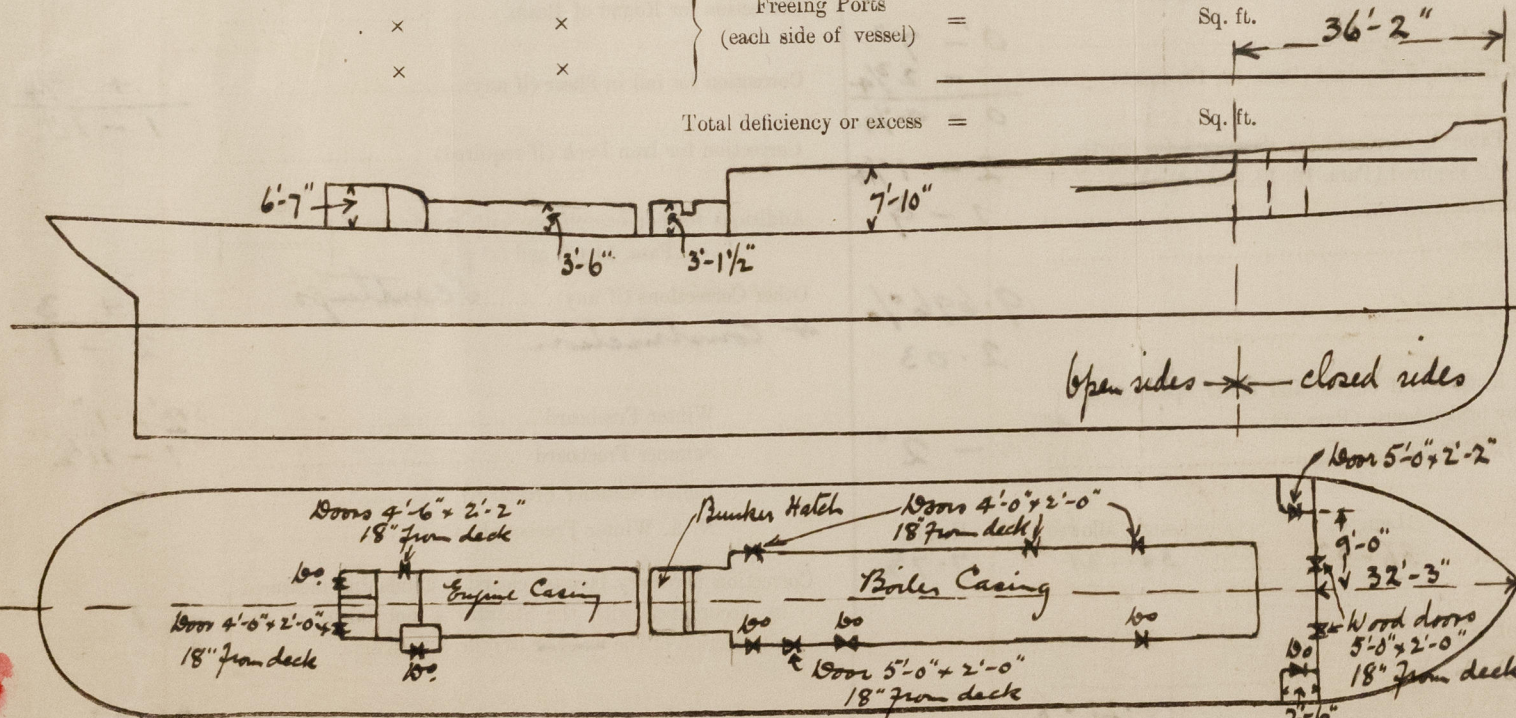 Freeing Ports
(each side of vessel) = Sq. ft.
× ×
× ×
36'-2"
Total deficiency or excess = Sq. ft.
6'-7"
7'-10"
3'-6"
3'-1½"
Open sides closed sides
Door 5'-0" × 2'-2"
Doors 4'-6" × 2'-2"
18" from deck
Bunker Hatch
Doors 4'-0" × 2'-0"
18" from deck
9'-0"
32'-3"
Do.
Engine Casing
Boiler Casing
Door 4'-0" × 2'-0"
18" from deck
Do.
Do
Do
Do
Do
Door 5'-0" × 2'-0"
18" from deck
Wood doors
5'-0" × 2'-0"
18" from deck